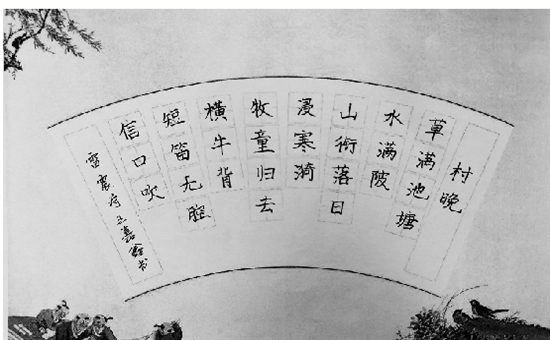 村晚
草满池塘
水满陂
山衔落日
浸寒漪
牧童归去
横牛背
短笛无腔
信口吹
雷震诗 嘉 书